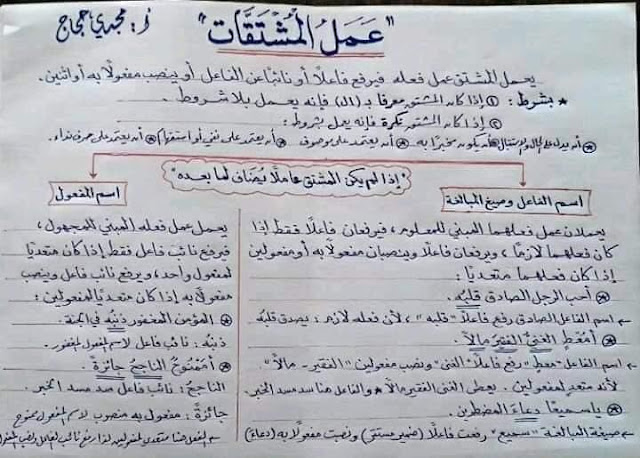 "عَمَلُ الْمُشْتَقَّات"
أ: مجدي حجاج
يعمل المشتق عمل فعله فيرفع فاعلًا أو نائبًا عن الفاعل أو ينصب مفعولًا به أو اثنين.
* بشرط: ① إذا كان المشتق معرفا بـ (ال) فإنه يعمل بلا شروط.
② إذا كان المشتق نكرة فإنه يعمل بشروط:
أن يدل على الحال والاستقبال * أن يكون مخبرًا به * أن يعتمد على موصوف * أن يعتمد على نفي أو استفهام * أن يعتمد على حرف نداء.
"إذا لم يكن المشتق عاملًا يُضاف لما بعده"
اسم الفاعل وصيغ المبالغة
يعملان عمل فعلهما المبني للمعلوم، فيرفعان فاعلًا فقط إذا
كان فعلهما لازمًا، ويرفعان فاعلًا وينصبان مفعولًا به أو مفعولين
إذا كان فعلهما متعديًا:
* أحب الرجل الصادق قلبه.
← اسم الفاعل الصادق رفع فاعلًا "قلبه"، لأن فعله لازم: يصدق قلبُه
* أمُعْطٍ الغنيُّ الفقيرَ مالًا.
← اسم الفاعل "معطٍ" رفع فاعلًا "الغنى" ونصب مفعولين "الفقير - مالًا".
لأنه متعدٍ لمفعولين. يعطى الغنى الفقير مالًا * والفاعل هنا سد مسد الخبر.
* يا سميعًا دعاءَ المضطرين.
← صيغة المبالغة "سميع" رفعت فاعلًا (ضمير مستتر) ونصبت مفعولًا به (دعاءَ)
اسم المفعول
يعمل عمل فعله المبني للمجهول،
فيرفع نائب فاعل فقط إذا كان متعديًا
لمفعول واحد، ويرفع نائب فاعل وينصب
مفعولًا به إذا كان متعديًا لمفعولين:
* المؤمن المغفور ذنبُه في الجنة.
ذنبُه: نائب فاعل لاسم المفعول المغفور.
* أممْنُوحٌ الناجحُ جائزةً.
الناجحُ: نائب فاعل سد مسد الخبر.
جائزةً: مفعول به منصوب لاسم المفعول ممنوح
← الفعل هنا متعدى لمفعولين لذا رفع نائب الفاعل ونصب المفعول